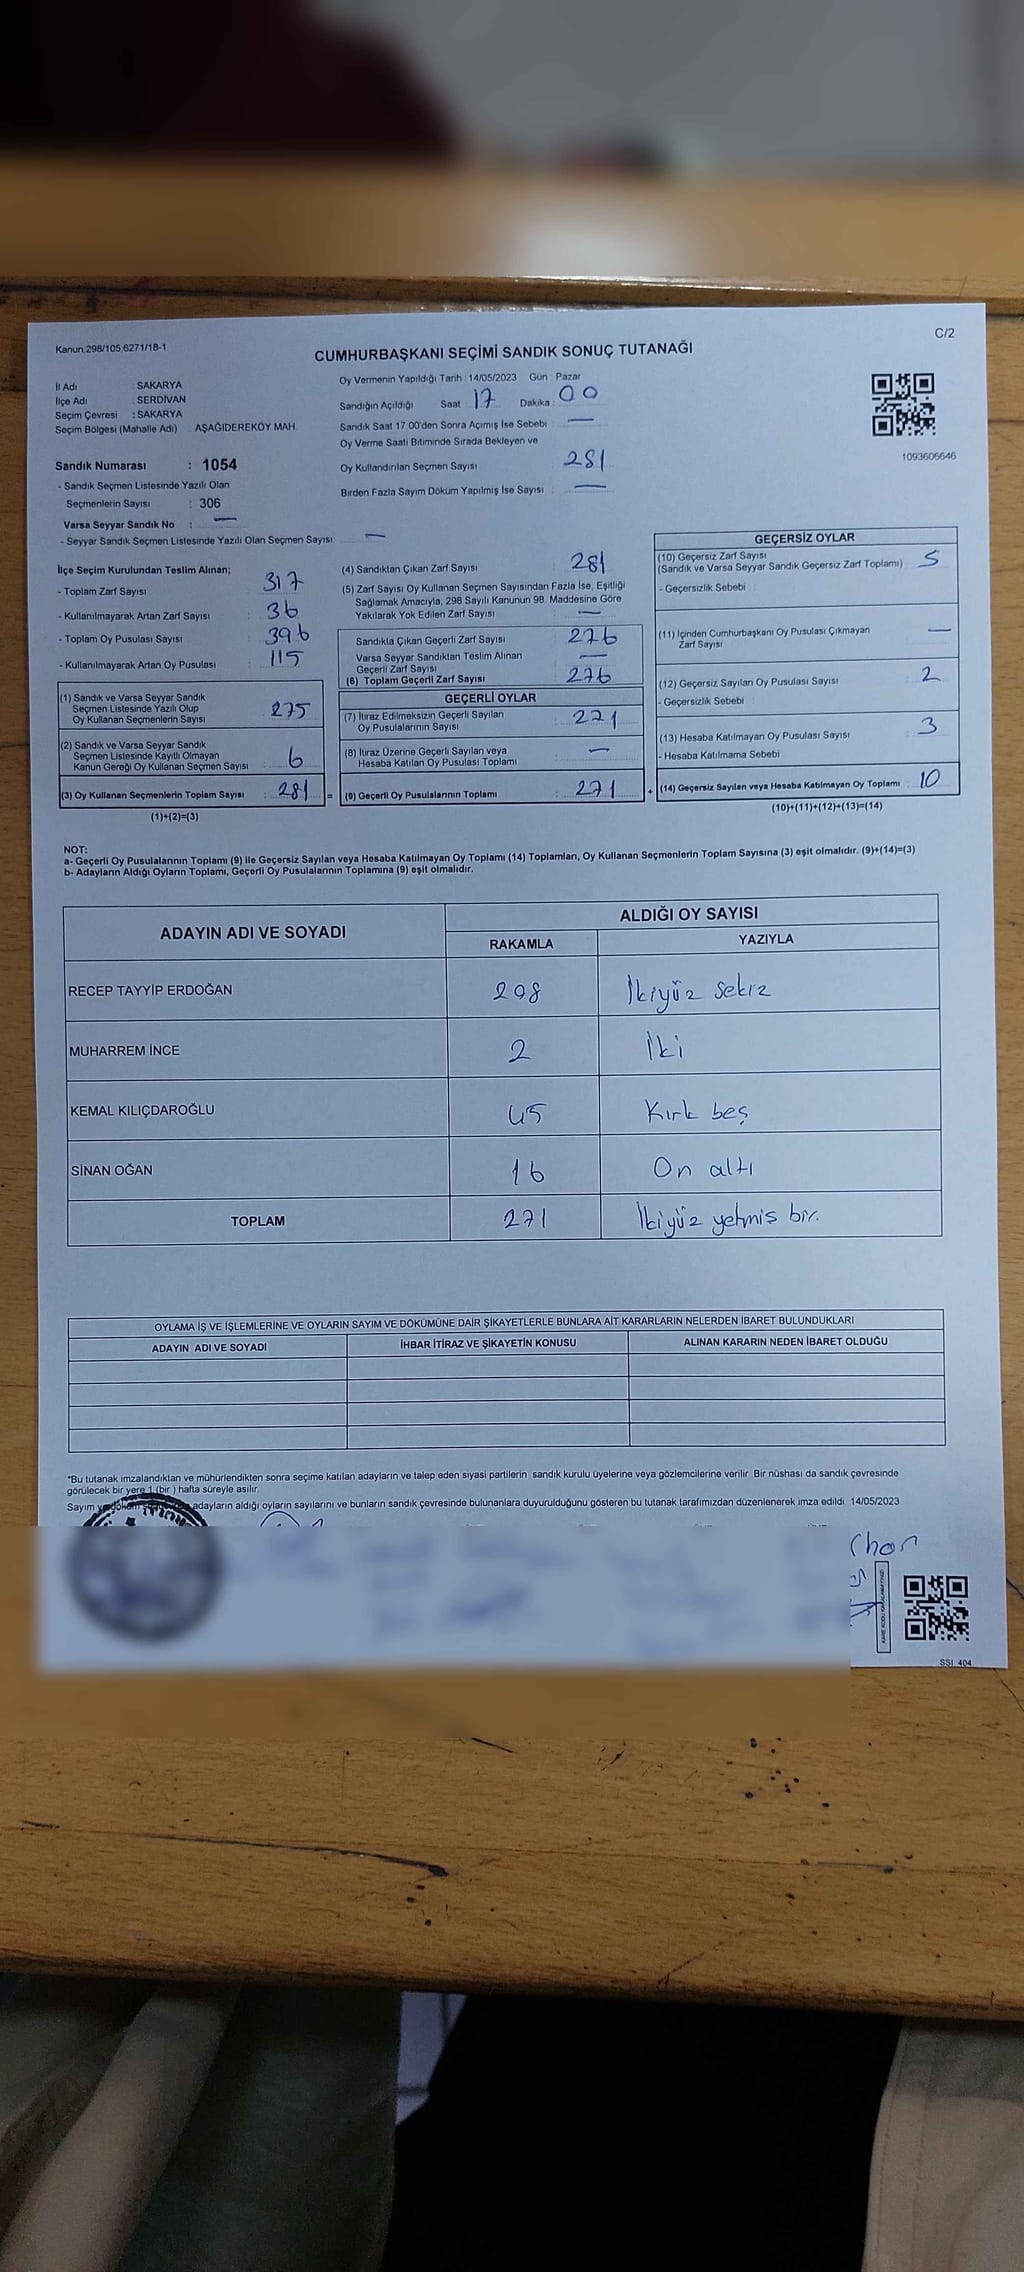 Kanun,298/105,6271/18-1
C/2
CUMHURBAŞKANI SEÇİMİ SANDIK SONUÇ TUTANAĞI
İl Adı : SAKARYA
İlçe Adı : SERDİVAN
Seçim Çevresi : SAKARYA
Seçim Bölgesi (Mahalle Adı) : AŞAĞIDEREKÖY MAH.
Sandık Numarası : 1054
- Sandık Seçmen Listesinde Yazılı Olan
Seçmenlerin Sayısı : 306
Varsa Seyyar Sandık No : —
- Seyyar Sandık Seçmen Listesinde Yazılı Olan Seçmen Sayısı —
Oy Vermenin Yapıldığı Tarih : 14/05/2023 Gün : Pazar
Sandığın Açıldığı Saat 17 Dakika : 00
Sandık Saat 17.00'den Sonra Açılmış İse Sebebi : —
Oy Verme Saati Bitiminde Sırada Bekleyen ve
Oy Kullandırılan Seçmen Sayısı : 281
Birden Fazla Sayım Döküm Yapılmış İse Sayısı : —
1093606646
İlçe Seçim Kurulundan Teslim Alınan;
- Toplam Zarf Sayısı : 317
- Kullanılmayarak Artan Zarf Sayısı : 36
- Toplam Oy Pusulası Sayısı : 396
- Kullanılmayarak Artan Oy Pusulası : 115
(1) Sandık ve Varsa Seyyar Sandık
Seçmen Listesinde Yazılı Olup
Oy Kullanan Seçmenlerin Sayısı : 275
(2) Sandık ve Varsa Seyyar Sandık
Seçmen Listesinde Kayıtlı Olmayan
Kanun Gereği Oy Kullanan Seçmen Sayısı : 6
(3) Oy Kullanan Seçmenlerin Toplam Sayısı : 281 =
(1)+(2)=(3)
(4) Sandıktan Çıkan Zarf Sayısı : 281
(5) Zarf Sayısı Oy Kullanan Seçmen Sayısından Fazla İse, Eşitliği
Sağlamak Amacıyla, 298 Sayılı Kanunun 98. Maddesine Göre
Yakılarak Yok Edilen Zarf Sayısı : —
Sandıkla Çıkan Geçerli Zarf Sayısı : 276
Varsa Seyyar Sandıktan Teslim Alınan
Geçerli Zarf Sayısı : —
(6) Toplam Geçerli Zarf Sayısı : 276
GEÇERLİ OYLAR
(7) İtiraz Edilmeksizin Geçerli Sayılan
Oy Pusulalarının Sayısı : 271
(8) İtiraz Üzerine Geçerli Sayılan veya
Hesaba Katılan Oy Pusulası Toplamı : —
(9) Geçerli Oy Pusulalarının Toplamı : 271 +
GEÇERSİZ OYLAR
(10) Geçersiz Zarf Sayısı
(Sandık ve Varsa Seyyar Sandık Geçersiz Zarf Toplamı) : 5
- Geçersizlik Sebebi :
(11) İçinden Cumhurbaşkanı Oy Pusulası Çıkmayan
Zarf Sayısı —
(12) Geçersiz Sayılan Oy Pusulası Sayısı : 2
- Geçersizlik Sebebi :
(13) Hesaba Katılmayan Oy Pusulası Sayısı : 3
- Hesaba Katılmama Sebebi :
(14) Geçersiz Sayılan veya Hesaba Katılmayan Oy Toplamı : 10
(10)+(11)+(12)+(13)=(14)
NOT:
a- Geçerli Oy Pusulalarının Toplamı (9) ile Geçersiz Sayılan veya Hesaba Katılmayan Oy Toplamı (14) Toplamları, Oy Kullanan Seçmenlerin Toplam Sayısına (3) eşit olmalıdır. (9)+(14)=(3)
b- Adayların Aldığı Oyların Toplamı, Geçerli Oy Pusulalarının Toplamına (9) eşit olmalıdır.
ADAYIN ADI VE SOYADI ALDIĞI OY SAYISI
RAKAMLA YAZIYLA
RECEP TAYYİP ERDOĞAN 208 İkiyüz Sekiz
MUHARREM İNCE 2 İki
KEMAL KILIÇDAROĞLU 45 Kırk beş
SİNAN OĞAN 16 On altı
TOPLAM 271 İkiyüz yetmiş bir.
OYLAMA İŞ VE İŞLEMLERİNE VE OYLARIN SAYIM VE DÖKÜMÜNE DAİR ŞİKAYETLERLE BUNLARA AİT KARARLARIN NELERDEN İBARET BULUNDUKLARI
ADAYIN ADI VE SOYADI İHBAR İTİRAZ VE ŞİKAYETİN KONUSU ALINAN KARARIN NEDEN İBARET OLDUĞU
*Bu tutanak imzalandıktan ve mühürlendikten sonra seçime katılan adayların ve talep eden siyasi partilerin sandık kurulu üyelerine veya gözlemcilerine verilir. Bir nüshası da sandık çevresinde
görülecek bir yere 1 (bir ) hafta süreyle asılır.
Sayım ve adayların aldığı oyların sayılarını ve bunların sandık çevresinde bulunanlara duyurulduğunu gösteren bu tutanak tarafımızdan düzenlenerek imza edildi. 14/05/2023
SSI 404